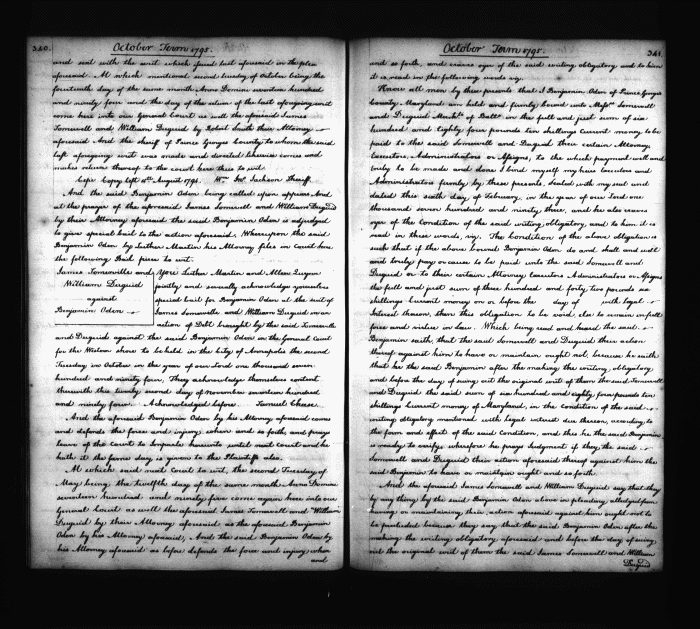 340. October Term 1795.
and said with the writ which issued last aforesaid in the plea
aforesaid. At which mentioned second tuesday of October being the
fourteenth day of the same month Anno Domini seventeen hundred
and ninety four and the day of the return of the last aforegoing writ
come here into our General Court as well the aforesaid James
Somervell and William Duguid by Robert Smith their Attorney
aforesaid And the sheriff of Prince Georges County to whom the said
last aforegoing writ was made and directed likewise comes and
makes return thereof to the court here thus to wit.
Cepi Copy left 11th August 1794. Wm. Jno. Jackson Sheriff.
And the said Benjamin Oden being called upon appears And
at the prayer of the aforesaid James Somervell and William Duguid
by their Attorney aforesaid the said Benjamin Oden is adjudged
to give special bail to the action aforesaid, Whereupon the said
Benjamin Oden by Luther Martin his Attorney files in Court here
the following Bail piece to wit.
James Somervelle and
William Duguid
against
Benjamin Oden
Luther Martin and Allen Quynn
jointly and severally acknowledge yourselves
special bail for Benjamin Oden at the suit of
James Somervelle and William Duguid in an
action of Debt brought by the said Somervelle
and Duguid against the said Benjamin Oden in the General Court
for the Western shore to be held in the City of Annapolis the second
Tuesday in October in the year of our Lord one thousand seven
hundred and ninety four, They acknowledge themselves content
therewith this twenty second day of November seventeen hundred
and ninety four. Acknowledged before Samuel Chase.
And the aforesaid Benjamin Oden by his Attorney aforesaid comes
and defends the force and injury, when and so forth, and prays
leave of the court to imparle hereunto until next court and he
hath it the same day is given to the Plaintiffs also.
At which said next Court to wit, the second Tuesday of
May being the twelfth day of the same month Anno Domini
seventeen hundred and ninety five come again here into our
General Court as well the aforesaid James Somervell and William
Duguid by their Attorney aforesaid as the aforesaid Benjamin
Oden by his Attorney aforesaid, And the said Benjamin Oden by
his Attorney aforesaid as before defends the force and injury when
and
October Term 1795. 341.
and so forth, and craves oyer of the said writing obligatory and to him
it is read in the following words viz.
Know all men by these presents that I Benjamin Oden of Prince Georges
County Maryland am held and firmly bound unto Messrs. Somervell
and Duguid Merchts. of Balto. in the full and just sum of six
hundred and eighty four pounds ten shillings current money to be
paid to the said Somervell and Duguid their certain Attorney
Executors, Administrators or Assigns, to the which payment well and
truly to be made and done I bind myself my heirs Executors and
Administrators firmly by these presents, sealed with my seal and
dated this sixth day of February, in the year of our Lord one
thousand seven hundred and ninety three, and he also craves
oyer of the condition of the said writing obligatory, and to him it is
read in these words, viz. The Condition of the above obligation is
such that if the above bound Benjamin Oden do and shall and well
and truly pay or cause to be paid unto the said Somervell and
Duguid or to their certain Attorney Executors Administrators or Assigns
the full and just sum of three hundred and forty two pounds
shillings Current money on or before the day of with legal
Interest thereon, then this obligation to be void else to remain in full
force and virtue in Law. Which being read and heard the said
Benjamin saith, that the said Somervell and Duguid their action
thereof against him to have or maintain ought not, because he saith
that he the said Benjamin after the making the writing obligatory
and before the day of suing out the original writ of them the said Somervell
and Duguid the said sum of six hundred and eighty four pounds ten
shillings current money of Maryland, in the condition of the said
writing obligatory mentioned with legal interest due thereon, according to
the form and effect of the said condition, and this he the said Benjamin
is ready to verify wherefore he prays Judgment if they the said
Somervell and Duguid their action aforesaid thereof against him the
said Benjamin to have or maintain ought and so forth.
And the aforesaid James Somervell and William Duguid say that they
by any thing by the said Benjamin Oden above in pleading alledged from
having or maintaining their action aforesaid against him ought not to
be precluded because they say that the said Benjamin Oden after the
making the writing obligatory aforesaid and before the day of suing
out the original writ of them the said James Somervell and William
Duguid